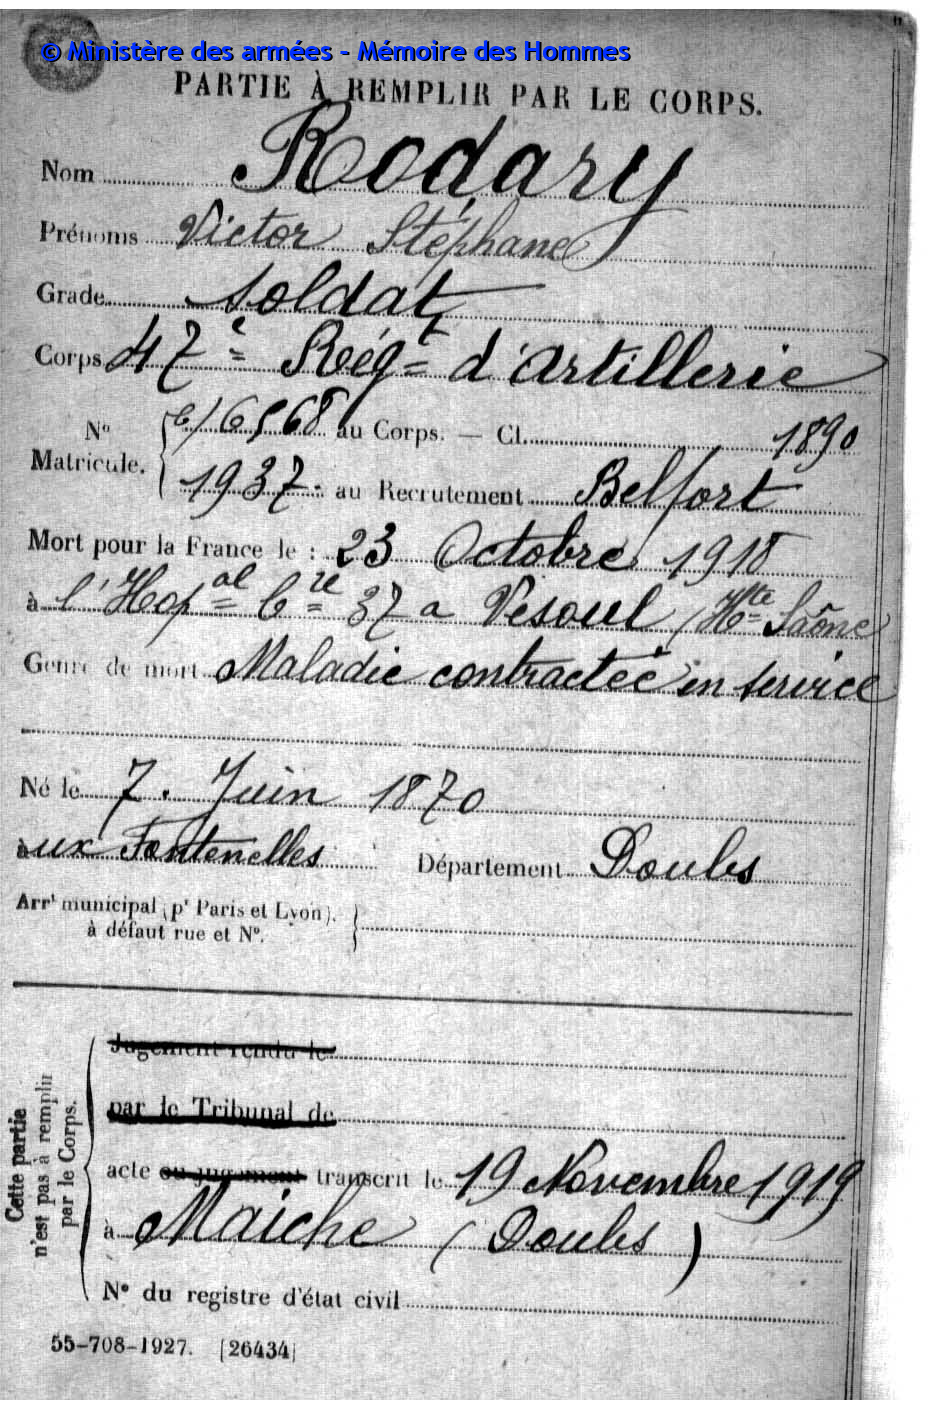 © Ministère des armées - Mémoire des Hommes
PARTIE À REMPLIR PAR LE CORPS.
Nom Rodary
Prénoms Victor Stéphane
Grade Soldat
Corps 47e Régt d'Artillerie
No Matricule. 16568 au Corps. — Cl. 1890
1937. au Recrutement Belfort
Mort pour la France le : 23 Octobre 1918
à l'Hopal Cre 37 a Vesoul (Hte Saône
Genre de mort Maladie contractée en service
Né le 7. Juin 1870
aux Fontenelles Département Doubs
Arrt municipal (pr Paris et Lyon),
à défaut rue et No.
Cette partie
n'est pas à remplir
par le Corps.
Jugement rendu le
par le Tribunal de
acte ou jugement transcrit le 19 Novembre 1919
à Maiche (Doubs)
No du registre d'état civil
55-708-1927. [26434]